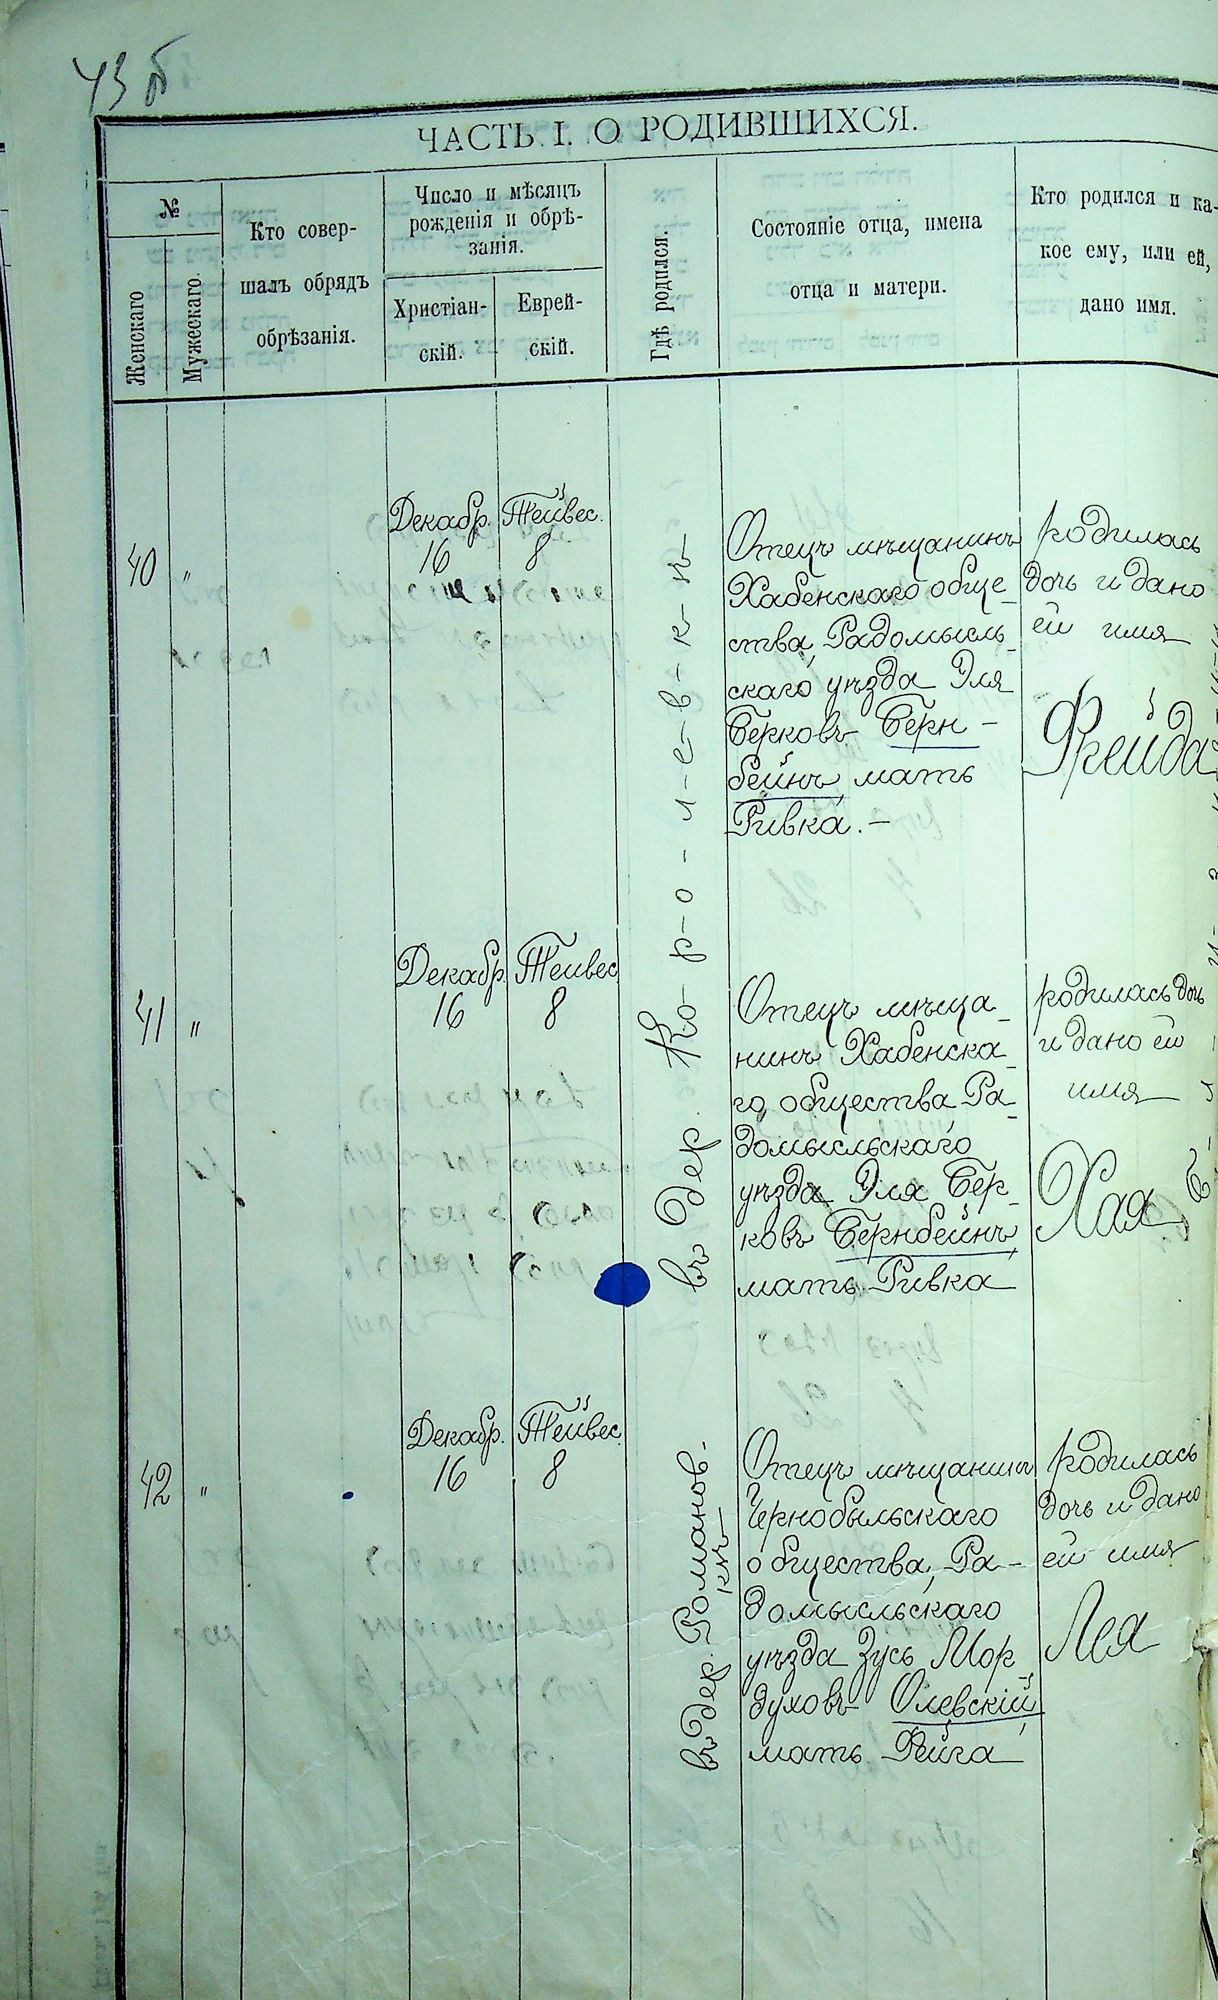 43 б
ЧАСТЬ I. О РОДИВШИХСЯ.
№
Женскаго
Мужескаго.
Кто совер-
шалъ обрядъ
обрѣзанія.
Число и мѣсяцъ
рожденія и обрѣ-
занія.
Христіан-
скій.
Еврей-
скій.
Гдѣ родился.
Состояніе отца, имена
отца и матери.
Кто родился и ка-
кое ему, или ей,
дано имя.
40
"
Декабр.
16
Тейвес.
8
въ дер. Ко-р-о-л-е-в-к-ѣ
Отецъ мѣщанинъ
Хабенскаго обще-
ства, Радомысль-
скаго уѣзда Эля
Берковъ Берн-
бейнъ, мать
Ривка. -
родилась
дочь и дано
ей имя
Фрейда
41
"
Декабр.
16
Тейвес
8
Отецъ мѣща-
нинъ Хабенска-
го, общества Ра-
домысльскаго
уѣзда Эля Бер-
ковъ Бернбейнъ,
мать Ривка
родилась дочь
и дано ей
имя
Хая
42
"
Декабр.
16
Тейвес.
8
въ дер. Романов-
кѣ
Отецъ мѣщанинъ
Чернобыльскаго
общества, Ра-
домысльскаго
уѣзда Зусь Мор
духовъ Олевскій
мать Фейга
родилась
дочь и дано
ей имя
Лея